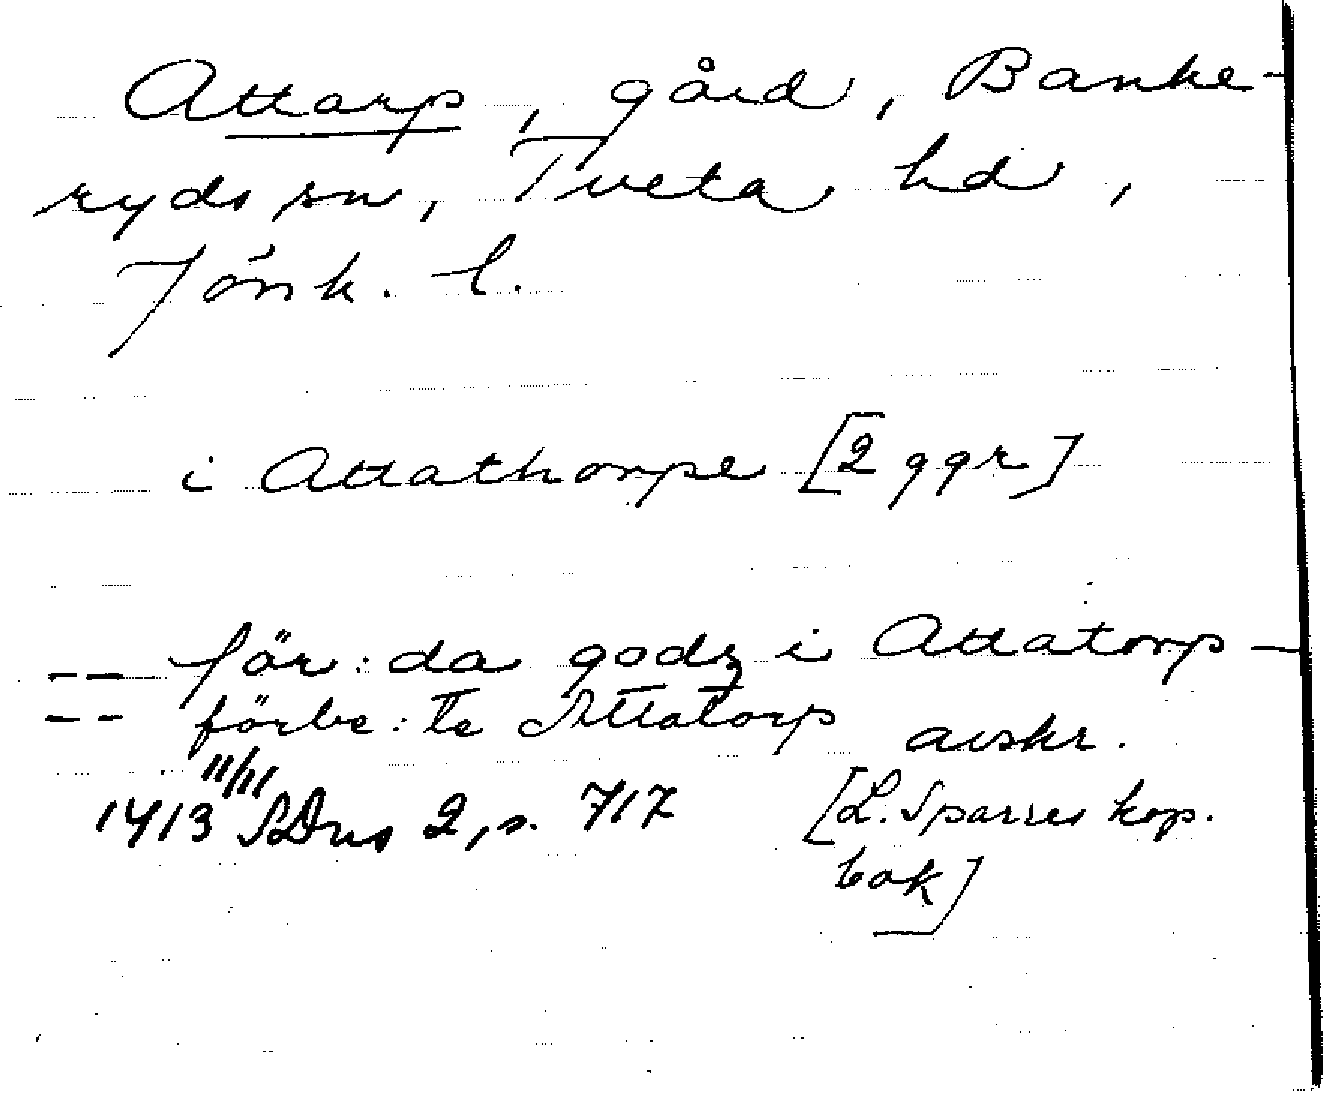 Attarp, gård, Banke-
ryds sn, Tveta hd,
Jönk. l.
i Attathorpe [2 ggr]
-- för: da godz i Attatorp -
-- förbe: te Attatorp avskr.
1413 11/11 SDns 2, s. 717 [L. Sparres kop.
bok]